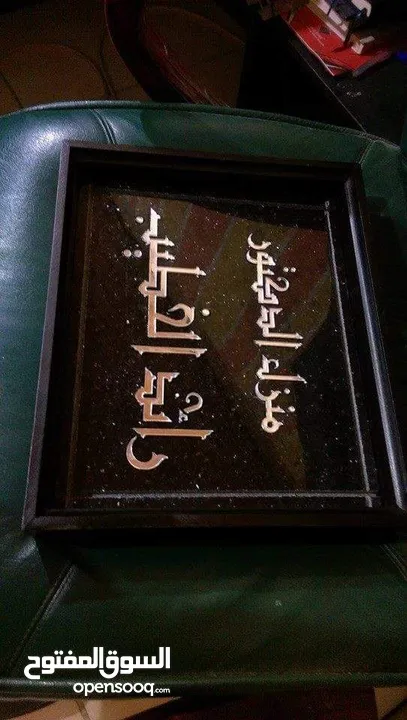 منزل الدكتور
رائد الخطيب
السوق المفتوح
opensooq.com